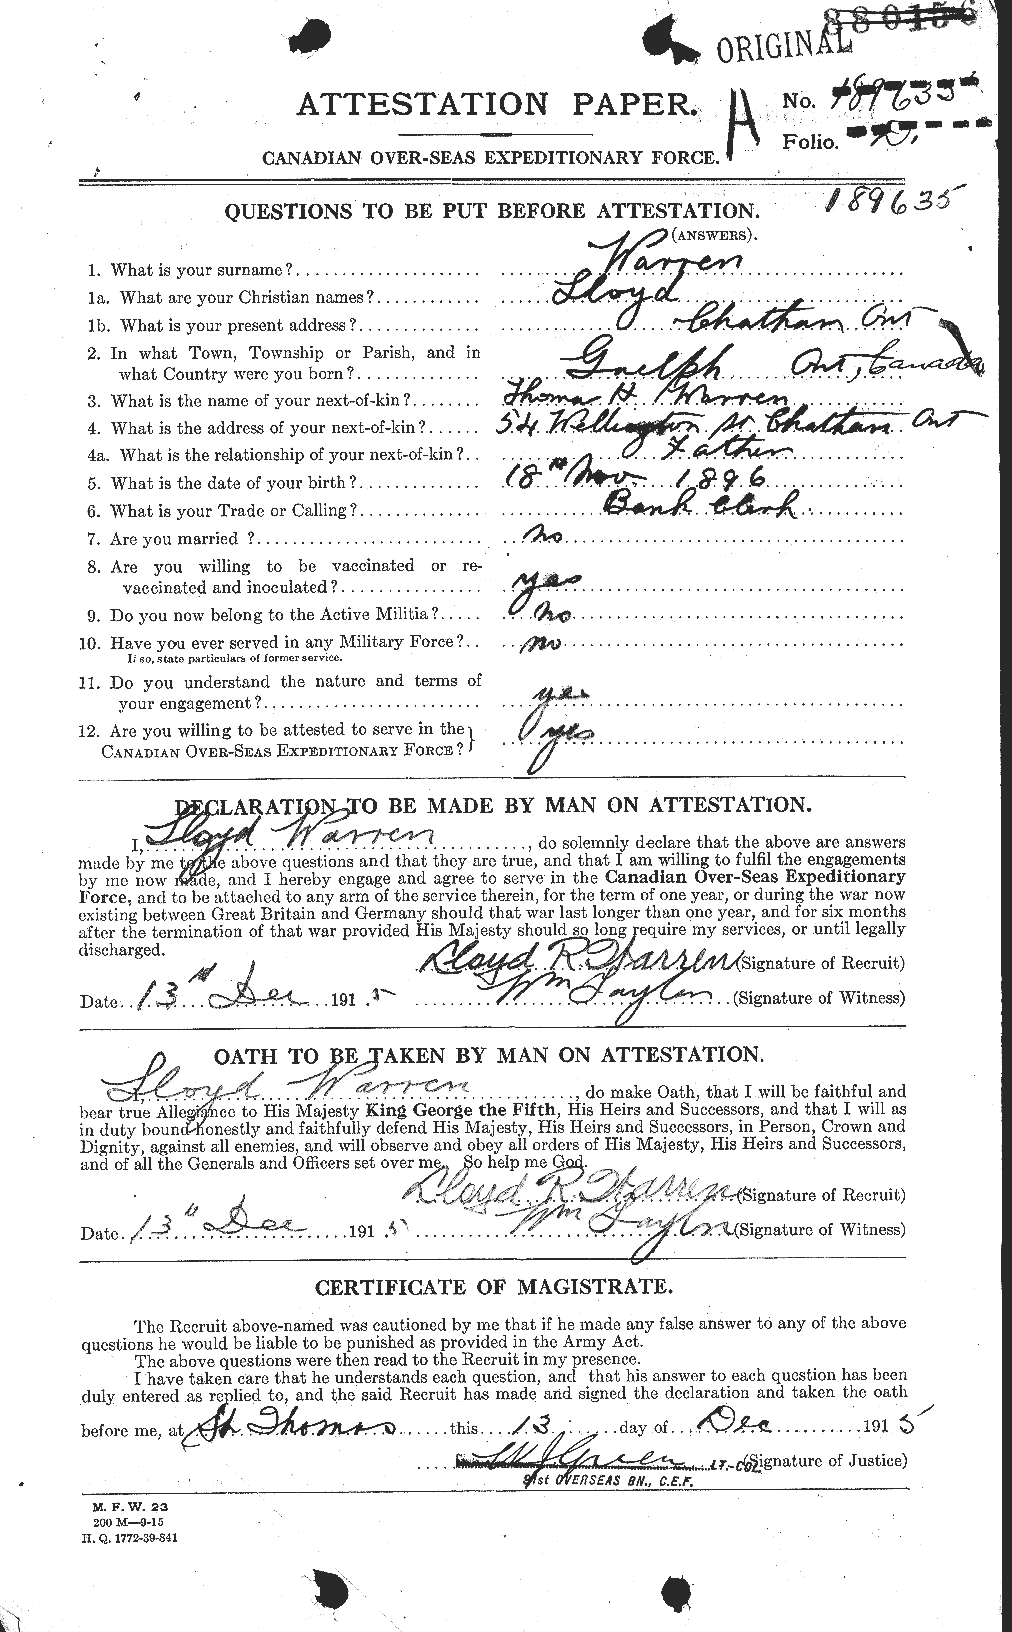 880156
ORIGINAL
ATTESTATION PAPER.
A
No. 189635
Folio.
CANADIAN OVER-SEAS EXPEDITIONARY FORCE.
189635
QUESTIONS TO BE PUT BEFORE ATTESTATION.
(ANSWERS).
1. What is your surname? Warren
1a. What are your Christian names? Lloyd
1b. What is your present address? Chatham Ont
2. In what Town, Township or Parish, and in
what Country were you born? Guelph Ont, Canada
3. What is the name of your next-of-kin? Thomas H Warren
4. What is the address of your next-of-kin? 54 Wellington St Chatham Ont
4a. What is the relationship of your next-of-kin? Father
5. What is the date of your birth? 18th Nov. 1896
6. What is your Trade or Calling? Bank Clerk
7. Are you married ? no
8. Are you willing to be vaccinated or re-
vaccinated and inoculated? yes
9. Do you now belong to the Active Militia? no
10. Have you ever served in any Military Force? no
If so, state particulars of former service.
11. Do you understand the nature and terms of
your engagement? yes
12. Are you willing to be attested to serve in the
CANADIAN OVER-SEAS EXPEDITIONARY FORCE? } yes
DECLARATION TO BE MADE BY MAN ON ATTESTATION.
I, Lloyd Warren, do solemnly declare that the above are answers
made by me to the above questions and that they are true, and that I am willing to fulfil the engagements
by me now made, and I hereby engage and agree to serve in the Canadian Over-Seas Expeditionary
Force, and to be attached to any arm of the service therein, for the term of one year, or during the war now
existing between Great Britain and Germany should that war last longer than one year, and for six months
after the termination of that war provided His Majesty should so long require my services, or until legally
discharged.
Lloyd R. Warren (Signature of Recruit)
Date 13th Dec 1915 Wm Taylor (Signature of Witness)
OATH TO BE TAKEN BY MAN ON ATTESTATION.
Lloyd Warren, do make Oath, that I will be faithful and
bear true Allegiance to His Majesty King George the Fifth, His Heirs and Successors, and that I will as
in duty bound honestly and faithfully defend His Majesty, His Heirs and Successors, in Person, Crown and
Dignity, against all enemies, and will observe and obey all orders of His Majesty, His Heirs and Successors,
and of all the Generals and Officers set over me. So help me God.
Lloyd R. Warren (Signature of Recruit)
Date 13th Dec 1915 Wm Taylor (Signature of Witness)
CERTIFICATE OF MAGISTRATE.
The Recruit above-named was cautioned by me that if he made any false answer to any of the above
questions he would be liable to be punished as provided in the Army Act.
The above questions were then read to the Recruit in my presence.
I have taken care that he understands each question, and that his answer to each question has been
duly entered as replied to, and the said Recruit has made and signed the declaration and taken the oath
before me, at St. Thomas this 13 day of Dec 1915
W J Green LT.-COL. (Signature of Justice)
91st OVERSEAS BN., C.E.F.
M. F. W. 23
200 M—9-15
H. Q. 1772-39-841